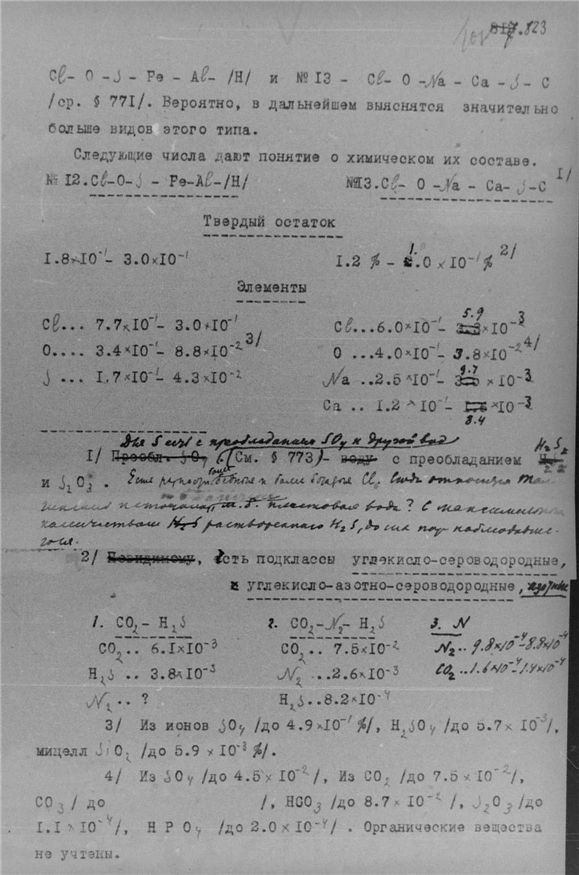 817. 823
Cl- O -S - Fe - Al- /H/ и №13 - Cl- O -Na - Ca -S - C
/ср. § 771/. Вероятно, в дальнейшем выяснятся значительно
больше видов этого типа.
Следующие числа дают понятие о химическом их составе.
№12.Cl-O-S - Fe-Al-/H/ №13.Cl- O -Na - Ca- S-C 1/
Твердый остаток
1.8×10⁻¹- 3.0×10⁻¹ 1.2 % - 1.0 × 10⁻¹% 2/
Элементы
Cl... 7.7×10⁻¹- 3.0×10⁻¹ Cl...6.0×10⁻¹- 5.9×10⁻³
O.... 3.4×10⁻¹- 8.8×10⁻² 3/ O ...4.0×10⁻¹- 3.8×10⁻² 4/
S ... 1.7×10⁻¹- 4.3×10⁻² Na ..2.5×10⁻¹- 9.7 × 10⁻³
Ca .. 1.2 ×10⁻¹- 8.4 ×10⁻³
Для S есть с преобладанием SO₄ и другой вод
1/ Преобл. SO₄ (См. § 773)- воду с преобладанием H₂S₂
и S₂O₃.
количеством H₂S растворенного H₂S, до сих пор наблюдавше-
гося.
2/ Невидимому, Есть подклассы углекисло-сероводородные,
и углекисло-азотно-сероводородные, азотные
1. CO₂- H₂S 2. CO₂-N₂- H₂S 3. N
CO₂.. 6.1×10⁻³ CO₂.. 7.5×10⁻² N₂.. 9.8×10⁻⁴-8.8×10⁻⁴
H₂S .. 3.8×10⁻³ N₂ ...2.6×10⁻³ CO₂..1.6×10⁻⁴-1.4×10⁻⁴
N₂ .. ? H₂S..8.2×10⁻⁴
3/ Из ионов SO₄ /до 4.9×10⁻¹%/, H₂SO₄ /до 5.7× 10⁻³/,
мицелл SiO₂ /до 5.9 × 10⁻³ %/.
4/ Из SO₄ /до 4.5× 10⁻²/, Из CO₂ /до 7.5 ×10⁻²/,
CO₃ / до /, HCO₃ /до 8.7× 10⁻² /, S₂O₃ /до
1.1 × 10⁻⁴/, H P O₄ /до 2.0× 10⁻⁴/ . Органические вещества
не учтены.